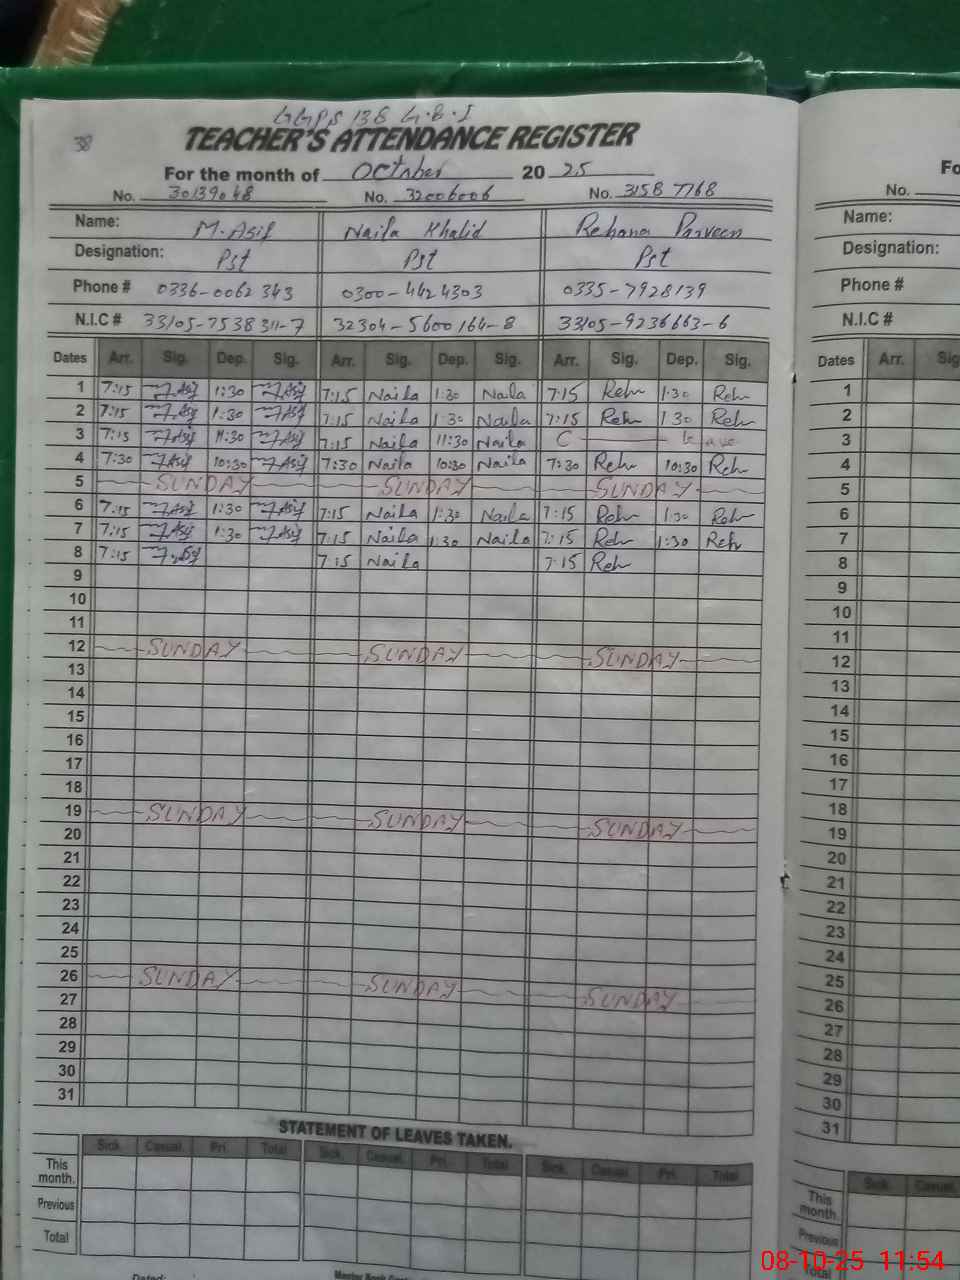 GGPS 138 G.B.I
38
TEACHER'S ATTENDANCE REGISTER
For the month of October 20 25
No. 30139048 No. 32006006 No. 31587768
Name: M. Asif Naila Khalid Rehana Parveen
Designation: Pst Pst Pst
Phone # 0336-0062343 0300-4424303 0335-7928139
N.I.C # 33105-7538311-7 32304-5600164-8 33105-9236663-6
Dates Arr. Sig. Dep. Sig. Arr. Sig. Dep. Sig. Arr. Sig. Dep. Sig.
1 7:15 Asif 1:30 Asif 7:15 Naila 1:30 Naila 7:15 Reh 1:30 Reh
2 7:15 Asif 1:30 Asif 7:15 Naila 1:30 Naila 7:15 Reh 1:30 Reh
3 7:15 Asif 11:30 Asif 7:15 Naila 11:30 Naila C leave
4 7:30 Asif 10:30 Asif 7:30 Naila 10:30 Naila 7:30 Reh 10:30 Reh
5 SUNDAY SUNDAY SUNDAY
6 7:15 Asif 1:30 Asif 7:15 Naila 1:30 Naila 7:15 Reh 1:30 Reh
7 7:15 Asif 1:30 Asif 7:15 Naila 1:30 Naila 7:15 Reh 1:30 Reh
8 7:15 Asif 7:15 Naila 7:15 Reh
9
10
11
12 SUNDAY SUNDAY SUNDAY
13
14
15
16
17
18
19 SUNDAY SUNDAY SUNDAY
20
21
22
23
24
25
26 SUNDAY SUNDAY SUNDAY
27
28
29
30
31
STATEMENT OF LEAVES TAKEN.
Sick. Casual. Pri. Total Sick. Casual. Pri. Total Sick. Casual. Pri. Total
This month.
Previous
Total
Dated:
Fo
No.
Name:
Designation:
Phone #
N.I.C #
Dates Arr. Sig
1
2
3
4
5
6
7
8
9
10
11
12
13
14
15
16
17
18
19
20
21
22
23
24
25
26
27
28
29
30
31
Sick. Casual.
This month.
Previous
Total
08-10-25 11:54